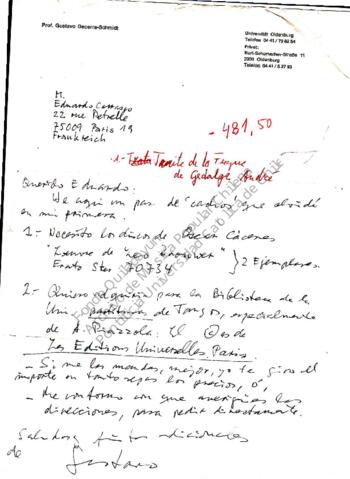 Prof. Gustavo Becerra-Schmidt
Universität Oldenburg
Telefon 04 41 / 79 82 54
Privat:
Kurt-Schumacher-Straße 11
2900 Oldenburg
Telefon 04 41 / 5 27 93
M.
Eduardo Carrasco
22 rue Petrelle
75009 Paris 19
Frankreich
- 481,50
1- Traité de la Fugue
de Gedalge, André
Querido Eduardo.
He aquí un par de "cachos" que olvidé
en mi primera.
1- Necesito los discos de Oscar Cáceres
"Leo Brouwer"
Erato Stu 70734 } 2 Ejemplares.
2- Quiero adquirir para la Biblioteca de la
Uni- partituras de Tangos, especialmente
de A. Piazzola. El © es de
Les Editions Universelles, Paris.
- Si me los mandas, mejor, yo te giro el
importe en tanto sepas los precios, ó,
- Me conformo con que averigües las
direcciones, para pedir directamente.
Saludos
de
Gustavo
Fondo Quilapayún